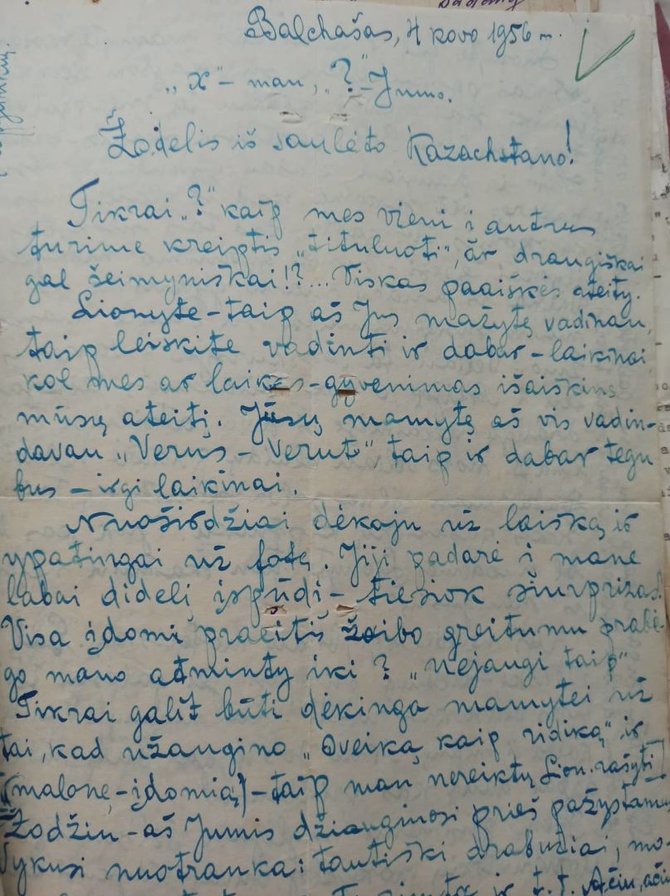 Balchašas, 4 kovo 1956 m.
„x" – man, „?" – Jums.
Žodelis iš saulėto Kazachstano!
Tikrai „?" kaip mes vieni į antrus
turime kreiptis „tituluoti", ar draugiškai
gal šeimyniškai!?... Viskas paaiškės ateity.
Lionyte – taip aš Jus mažytę vadinau,
taip leiskite vadinti ir dabar – laikinai
kol mes ar laikas – gyvenimas išaiškins
mūsų ateitį. Jūsų mamytę aš vis vadin-
davau „Verus – Verut", taip ir dabar tegu
bus – irgi laikinai.
Nuoširdžiai dėkoju už laišką ir
ypatingai už fotą. Jiji padarė į mane
labai didelį įspūdį – tiesiok siurprizas.
Visa įdomi praeitis žaibo greitumu prabė-
go mano atminty iki ? „nejaugi taip"
Tikrai galit būti dėkinga mamytei už
tai, kad užaugino „sveiką kaip ridiką" ir
(malonę – įdomią) – taip man nereiktų Lion. rašyti
Žodžiu – aš Jumis džiaugiuosi prieš pažystamus
Vykusi nuotrauka: tautiški drabužiai, mo-
ir t.t. Ačiū, ačiū